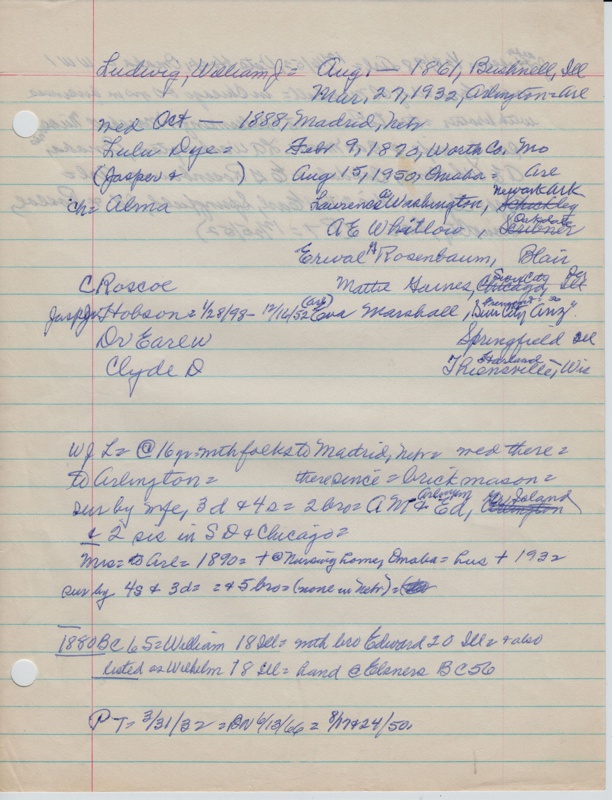 Ludwig, William J = Aug. — 1861, Bushnell, Ill
Mar, 27, 1932, Arlington = Arl
med Oct — 1888, Madrid, Neb
Lulu Dye = Feb 9, 1870, Worth Co. Mo
(Jasper & ) Aug 15, 1950, Omaha = Arl
ch = Alma Lawrence Washington, Newark Ark
A E Whitlow, Oakdale Scribner
Erwal Rosenbaum, Blair
C Roscoe Matte Gaines, Chicago, Ill
Hobson = 1/28/98 - 12/16/52 (Arl) Eva Marshall, Sun City Ariz
Dr Earl W Springfield Ill
Clyde D Thiensville, Wis
W J L = @ 16 yr = with folks to Madrid, Neb = med there =
to Arlington = there since = brick mason =
sur by wife, 3 d & 4 s = 2 bro = A M & Ed, Arlington
& 2 sis in S D & Chicago =
Mrs = to Arl = 1890 = + @ Nursing home, Omaha = hus + 1932
sur by 4 s & 3 d = = & 5 bro = (none in Nebr) =
1880 BC 65 = William 18 Ill = with bro Edward 20 Ill = & also
listed as Wilhelm 18 Ill = hand @ Elsners BC 56
P T = 3/31/32 = BN 6/13/66 = 8/17 & 24/50